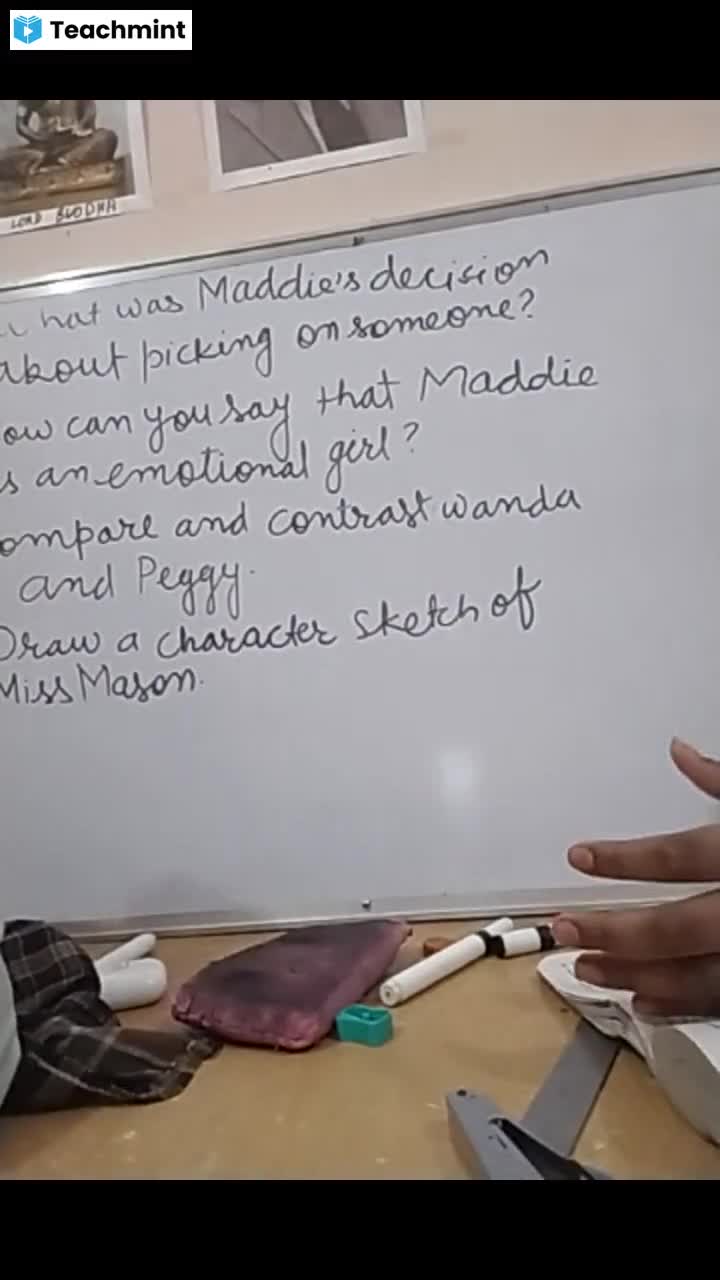 Teachmint
LORD BUDDHA
What was Maddie's decision
about picking on someone?
ow can you say that Maddie
s an emotional girl?
ompare and contrast wanda
and Peggy.
Draw a character sketch of
Miss Mason.